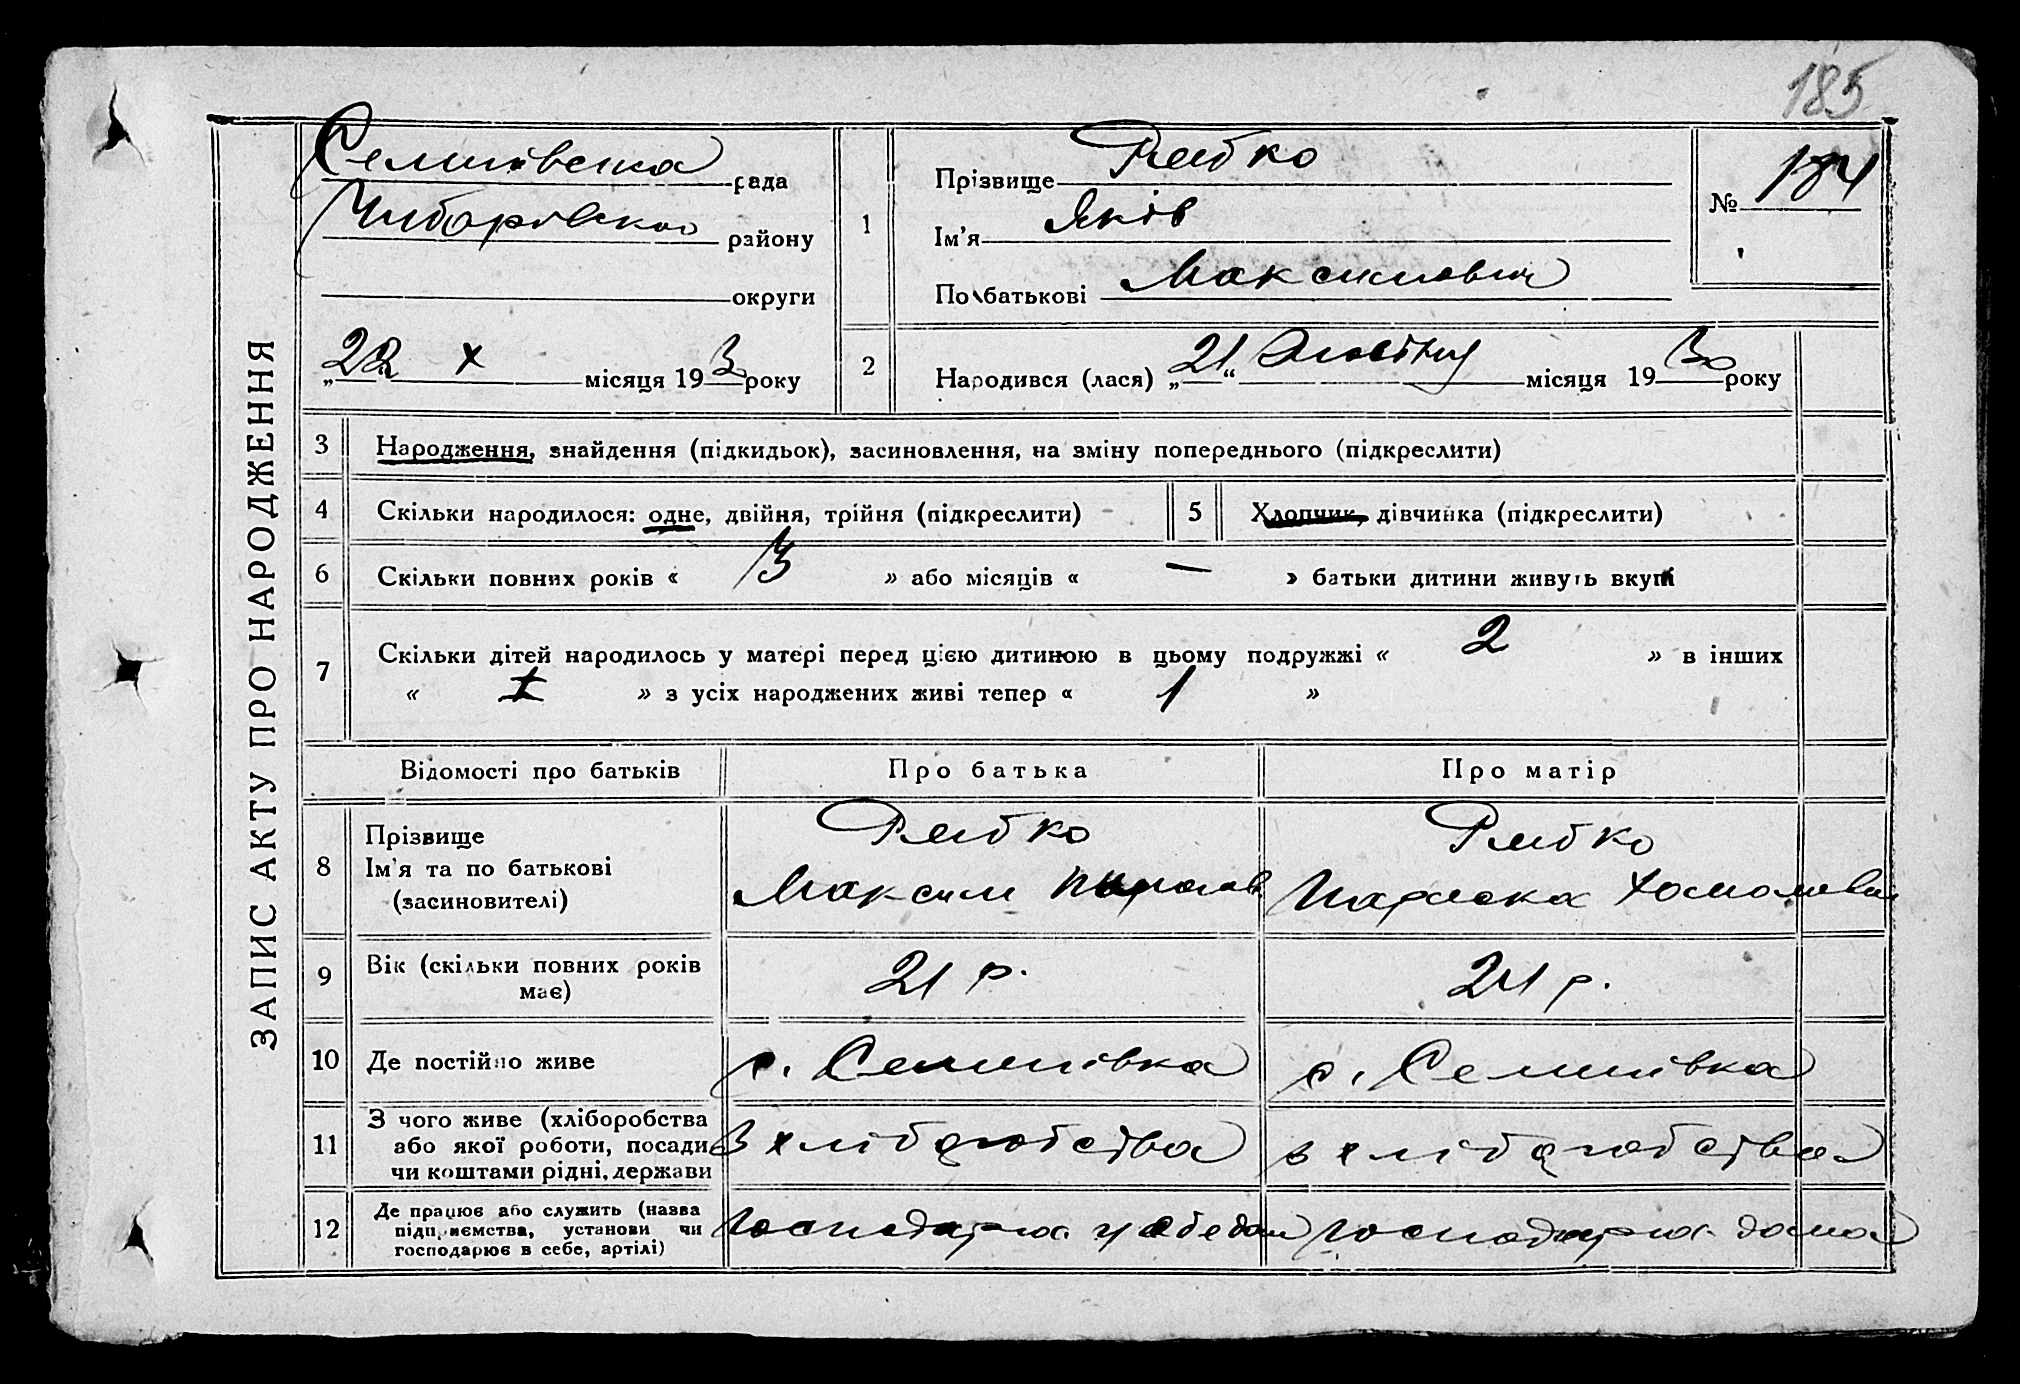 185
ЗАПИС АКТУ ПРО НАРОДЖЕННЯ
рада
району
округи
„22“ X місяця 193 року
1
Прізвище Рябко
Ім'я Яків
По батькові Максимович
№ 184
2
Народився (лася) „21“ Жовтня місяця 1930 року
3 Народження, знайдення (підкидьок), засиновлення, на зміну попереднього (підкреслити)
4 Скільки народилося: одне, двійня, трійня (підкреслити)
5 Хлопчик, дівчинка (підкреслити)
6 Скільки повних років « 3 » або місяців « — » батьки дитини живуть вкупі
7 Скільки дітей народилось у матері перед цією дитиною в цьому подружжі « 2 » в інших
« » з усіх народжених живі тепер « 1 »
Відомості про батьків Про батька Про матір
8 Прізвище
Ім'я та по батькові
(засиновителі)
Рябко
Максим
Рябко
Параска
9 Вік (скільки повних років
має)
21 р.
24 р.
10 Де постійно живе
с. Семенівка
с. Семенівка
11 З чого живе (хліборобства
або якої роботи, посади
чи коштами рідні, держави
З хліборобства
з хліборобства
12 Де працює або служить (назва
підприємства, установи чи
господарює в себе, артілі)
господарює у себе дома
господарює дома